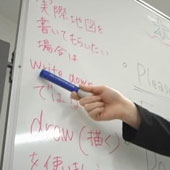 実際地図を
書いてもらいたい
場合は
write down
では
draw (描く)
を使い
Pleas
D